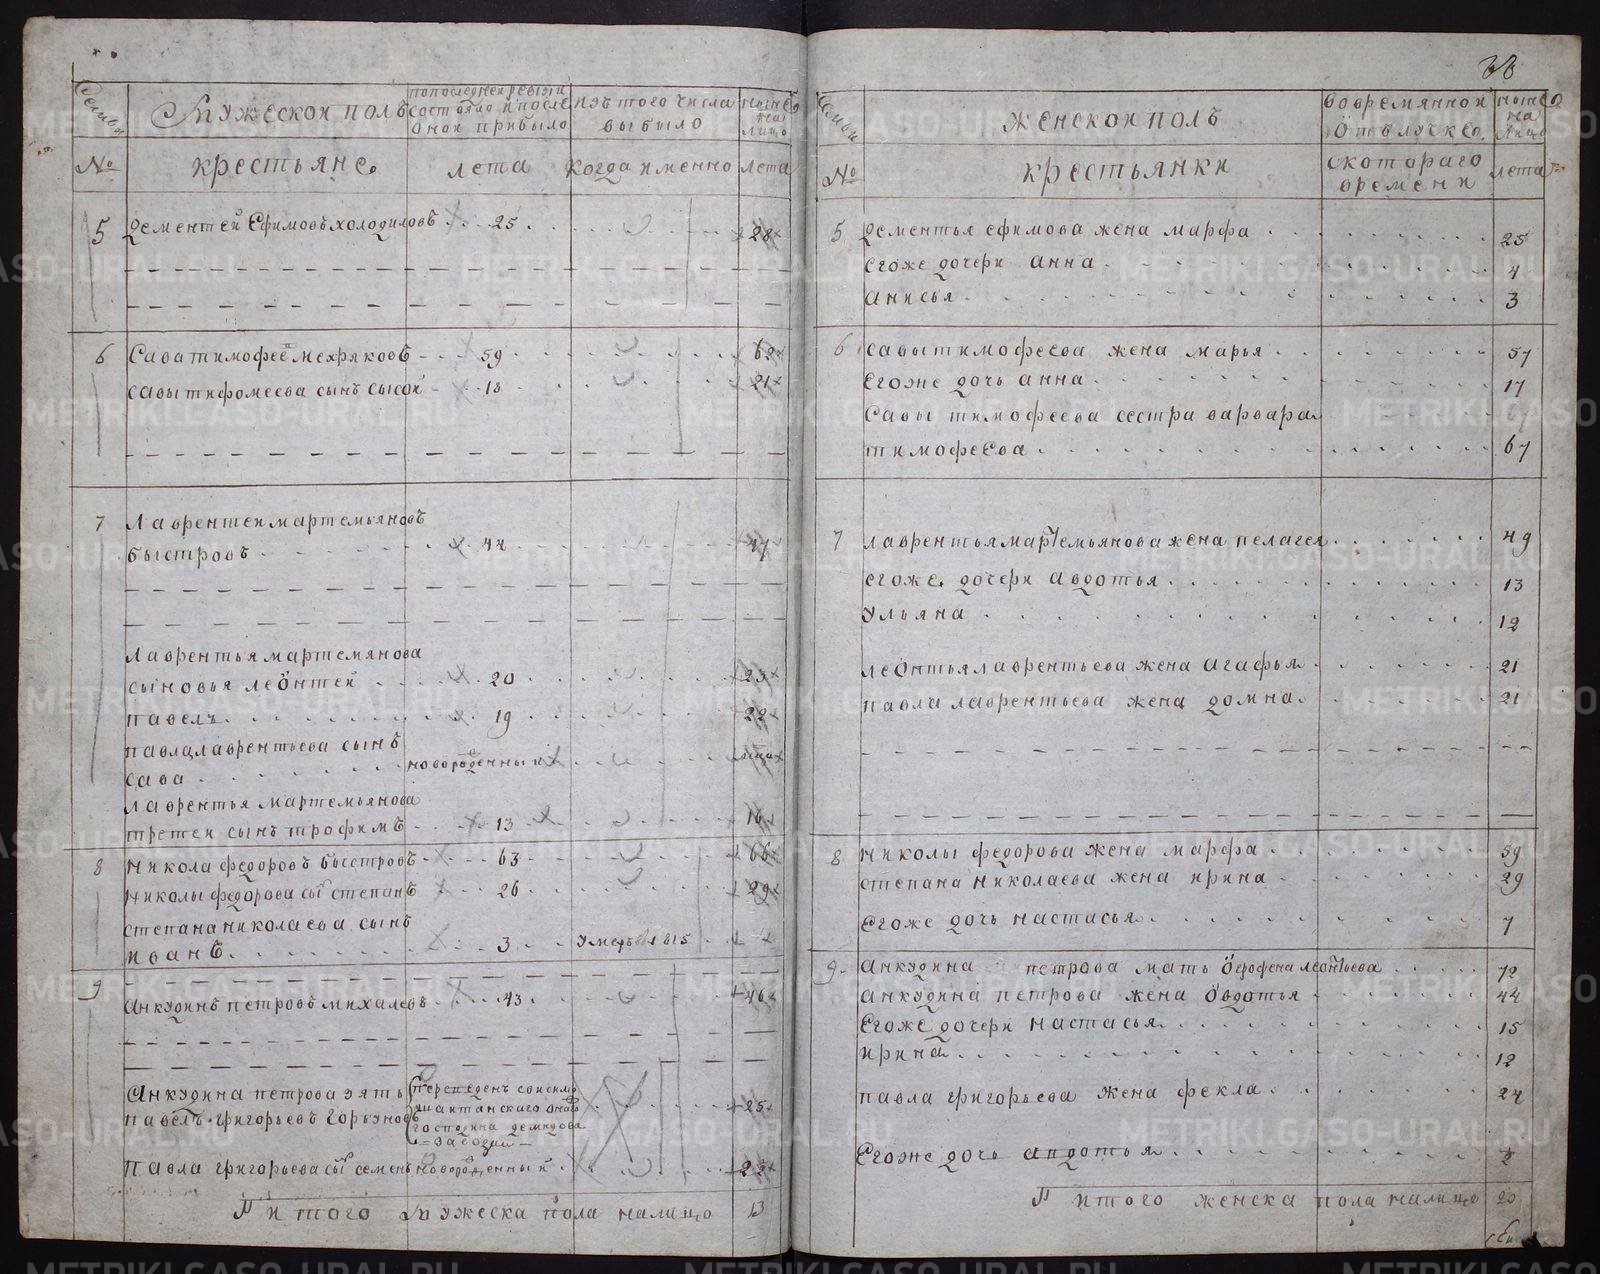 Семьи
Мужескои полъ
по последнеи ревизи состояло и после онои прибыло
изъ того числа выбыло
ныне на лицо
№
крестьяне
лета
когда именно
лета
5 Дементеи Ефимовъ холодиловъ 25 28
6 Сава тимофеевъ мехряковъ 59 62
Савы тифомеева сынъ сысои 18 21
7 Лаврентеи мартемьяновъ
быстровъ 44 47
Лаврентья мартемянова
сыновья леонтеи 20 23
павелъ 19 22
павла лаврентьева сынъ
сава новорожденныи
Лаврентья мартемьянова
третеи сынъ трофимъ 13 16
8 Никола федоровъ быстровъ 63 66
Николы федорова сынъ степанъ 26 29
степана николаева сынъ
иванъ 3 умеръ 1815
9 Анкудинъ петровъ михалевъ 43 46
Анкудина петрова зять
павелъ григорьевъ Горъзновъ
переведенъ
господина демидова
25
Павла григорьева сынъ семенъ новорожденныи
Итого Мужеска пола налицо 13
Семьи
Женскои полъ
во времяннои отълучке
ныне на лицо
№
крестьянки
с котораго времени
лета
5 Дементья ефимова жена марфа 25
Егоже дочери анна 4
анисья 3
6 Савы тимофеева жена марья 57
Егоже дочь анна 17
Савы тимофеева сестра варвара
тимофеева 67
7 Лаврентья мартемьянова жена пелагея 49
егоже дочери авдотья 13
ульяна 12
леонтья лаврентьева жена агафья 21
павла лаврентьева жена домна 21
8 Николы федорова жена марфа 59
степана николаева жена ирина 29
Егоже дочь настасья 7
9 Анкудина петрова мать офрофена леонтьева 72
Анкудина петрова жена овдотья 44
Егоже дочери настасья 15
ирина 12
павла григорьева жена фекла 24
Егоже дочь авдотья 2
Итого женска пола налицо 20